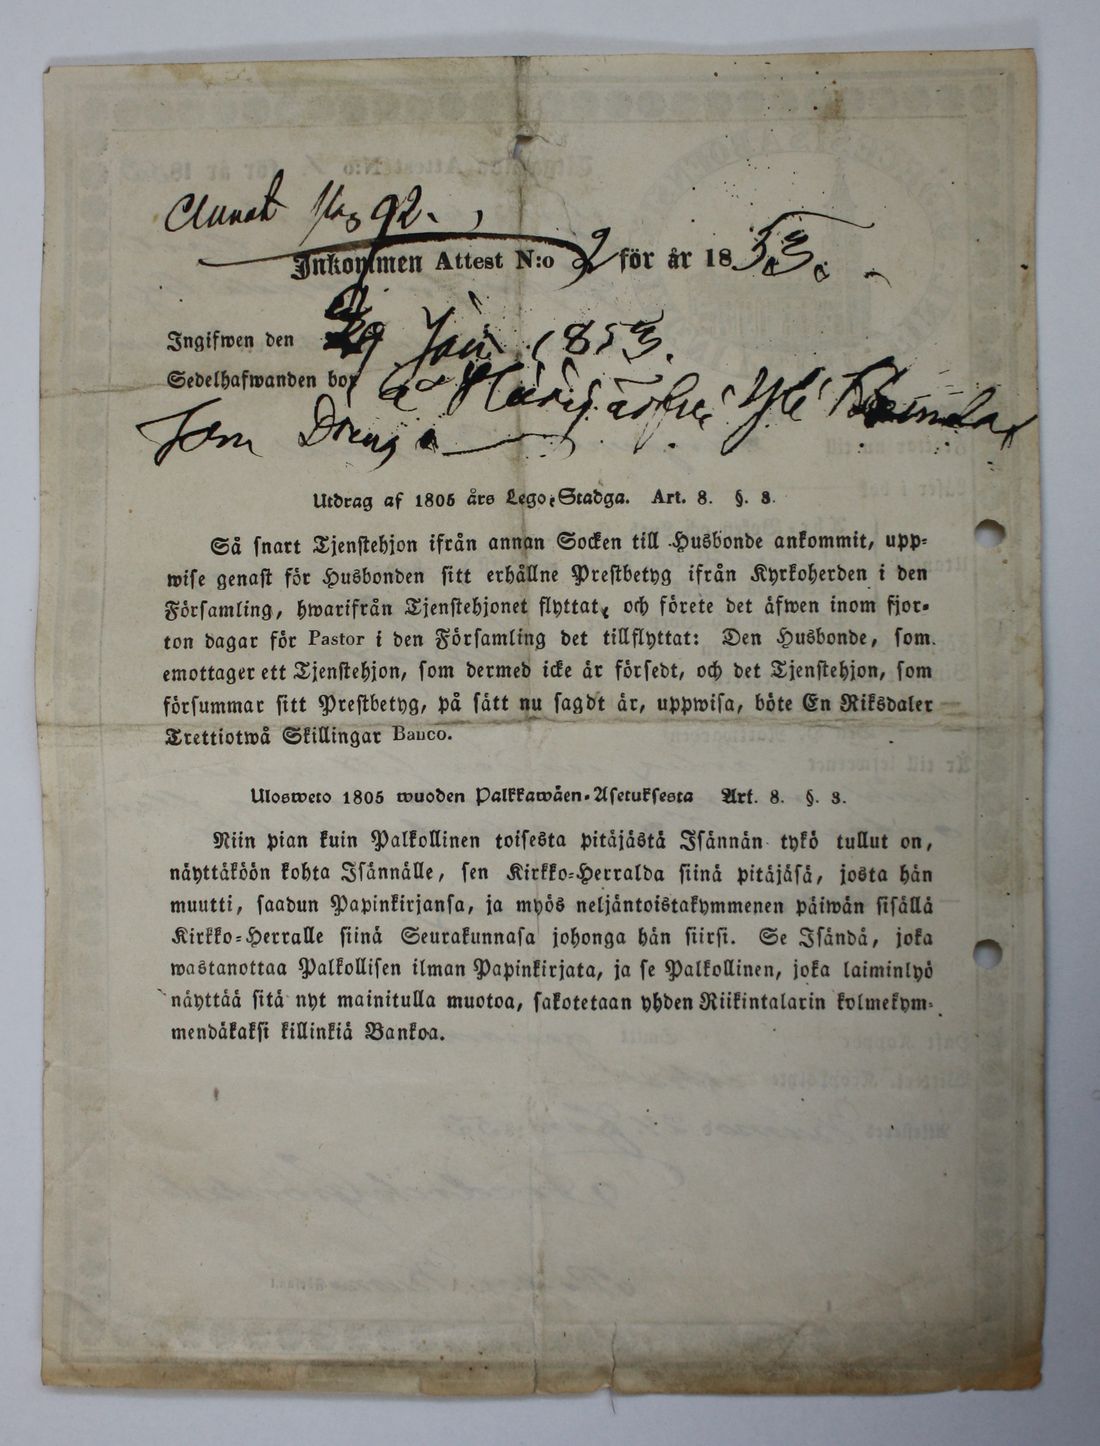 92.
Inkommen Attest N:o 2 för år 1853.
Ingifwen den 29 Jan 1853.
Sedelhafwanden bor
Som Dreng
Utdrag af 1805 års Lego-Stadga. Art. 8. §. 3.
Så snart Tjenstehjon ifrån annan Socken till Husbonde ankommit, upp-
wise genast för Husbonden sitt erhållne Prestbetyg ifrån Kyrkoherden i den
Församling, hwarifrån Tjenstehjonet flyttat, och förete det äfwen inom fjor-
ton dagar för Pastor i den Församling det tillflyttat: Den Husbonde, som
emottager ett Tjenstehjon, som dermed icke är försedt, och det Tjenstehjon, som
försummar sitt Prestbetyg, på sätt nu sagdt är, uppwisa, böte En Riksdaler
Trettiotwå Skillingar Banco.
Ulosweto 1805 wuoden Palkkawäen-Asetuksesta Art. 8. §. 3.
Niin pian kuin Palkollinen toisesta pitäjästä Isännän tykö tullut on,
näyttäköön kohta Isännälle, sen Kirkko-Herralda siinä pitäjäsä, josta hän
muutti, saadun Papinkirjansa, ja myös neljäntoistakymmenen päiwän sisällä
Kirkko-Herralle siinä Seurakunnasa johonga hän siirsi. Se Isändä, joka
wastanottaa Palkollisen ilman Papinkirjata, ja se Palkollinen, joka laiminlyö
näyttää sitä nyt mainitulla muotoa, sakotetaan yhden Riikintalarin kolmekym-
mendäkaksi killinkiä Bankoa.